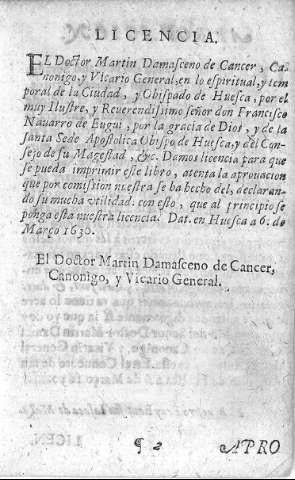 LICENCIA.
EL Doctor Martin Damasceno de Cancer, Ca-
nonigo, y Vicario General, en lo espiritual, y tem
poral de la Ciudad, y Obispado de Huesca, por el
muy Ilustre, y Reuerendissimo señor don Francisco
Nauarro de Eugui, por la gracia de Dios, y de la
santa Sede Apostolica Obispo de Huesca, y del Con-
sejo de su Magestad, &c. Damos licencia para que
se pueda imprimir este libro, atenta la aprouacion
que por comission nuestra se ha hecho del, declaran-
do su mucha vtilidad. con esto, que al principio se
ponga esta nuestra licencia. Dat. en Huesca a 6. de
Março 1630.
El Doctor Martin Damasceno de Cancer,
Canonigo, y Vicario General.
¶ 2 APRO